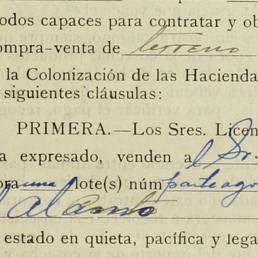 odos capaces para contratar y ob
ompra-venta de terreno
la Colonización de las Hacienda
siguientes cláusulas:
PRIMERA.—Los Sres. Licen
a expresado, venden a l Sr.
ora una lote(s) núm parte agr
el Alamo
estado en quieta, pacífica y lega